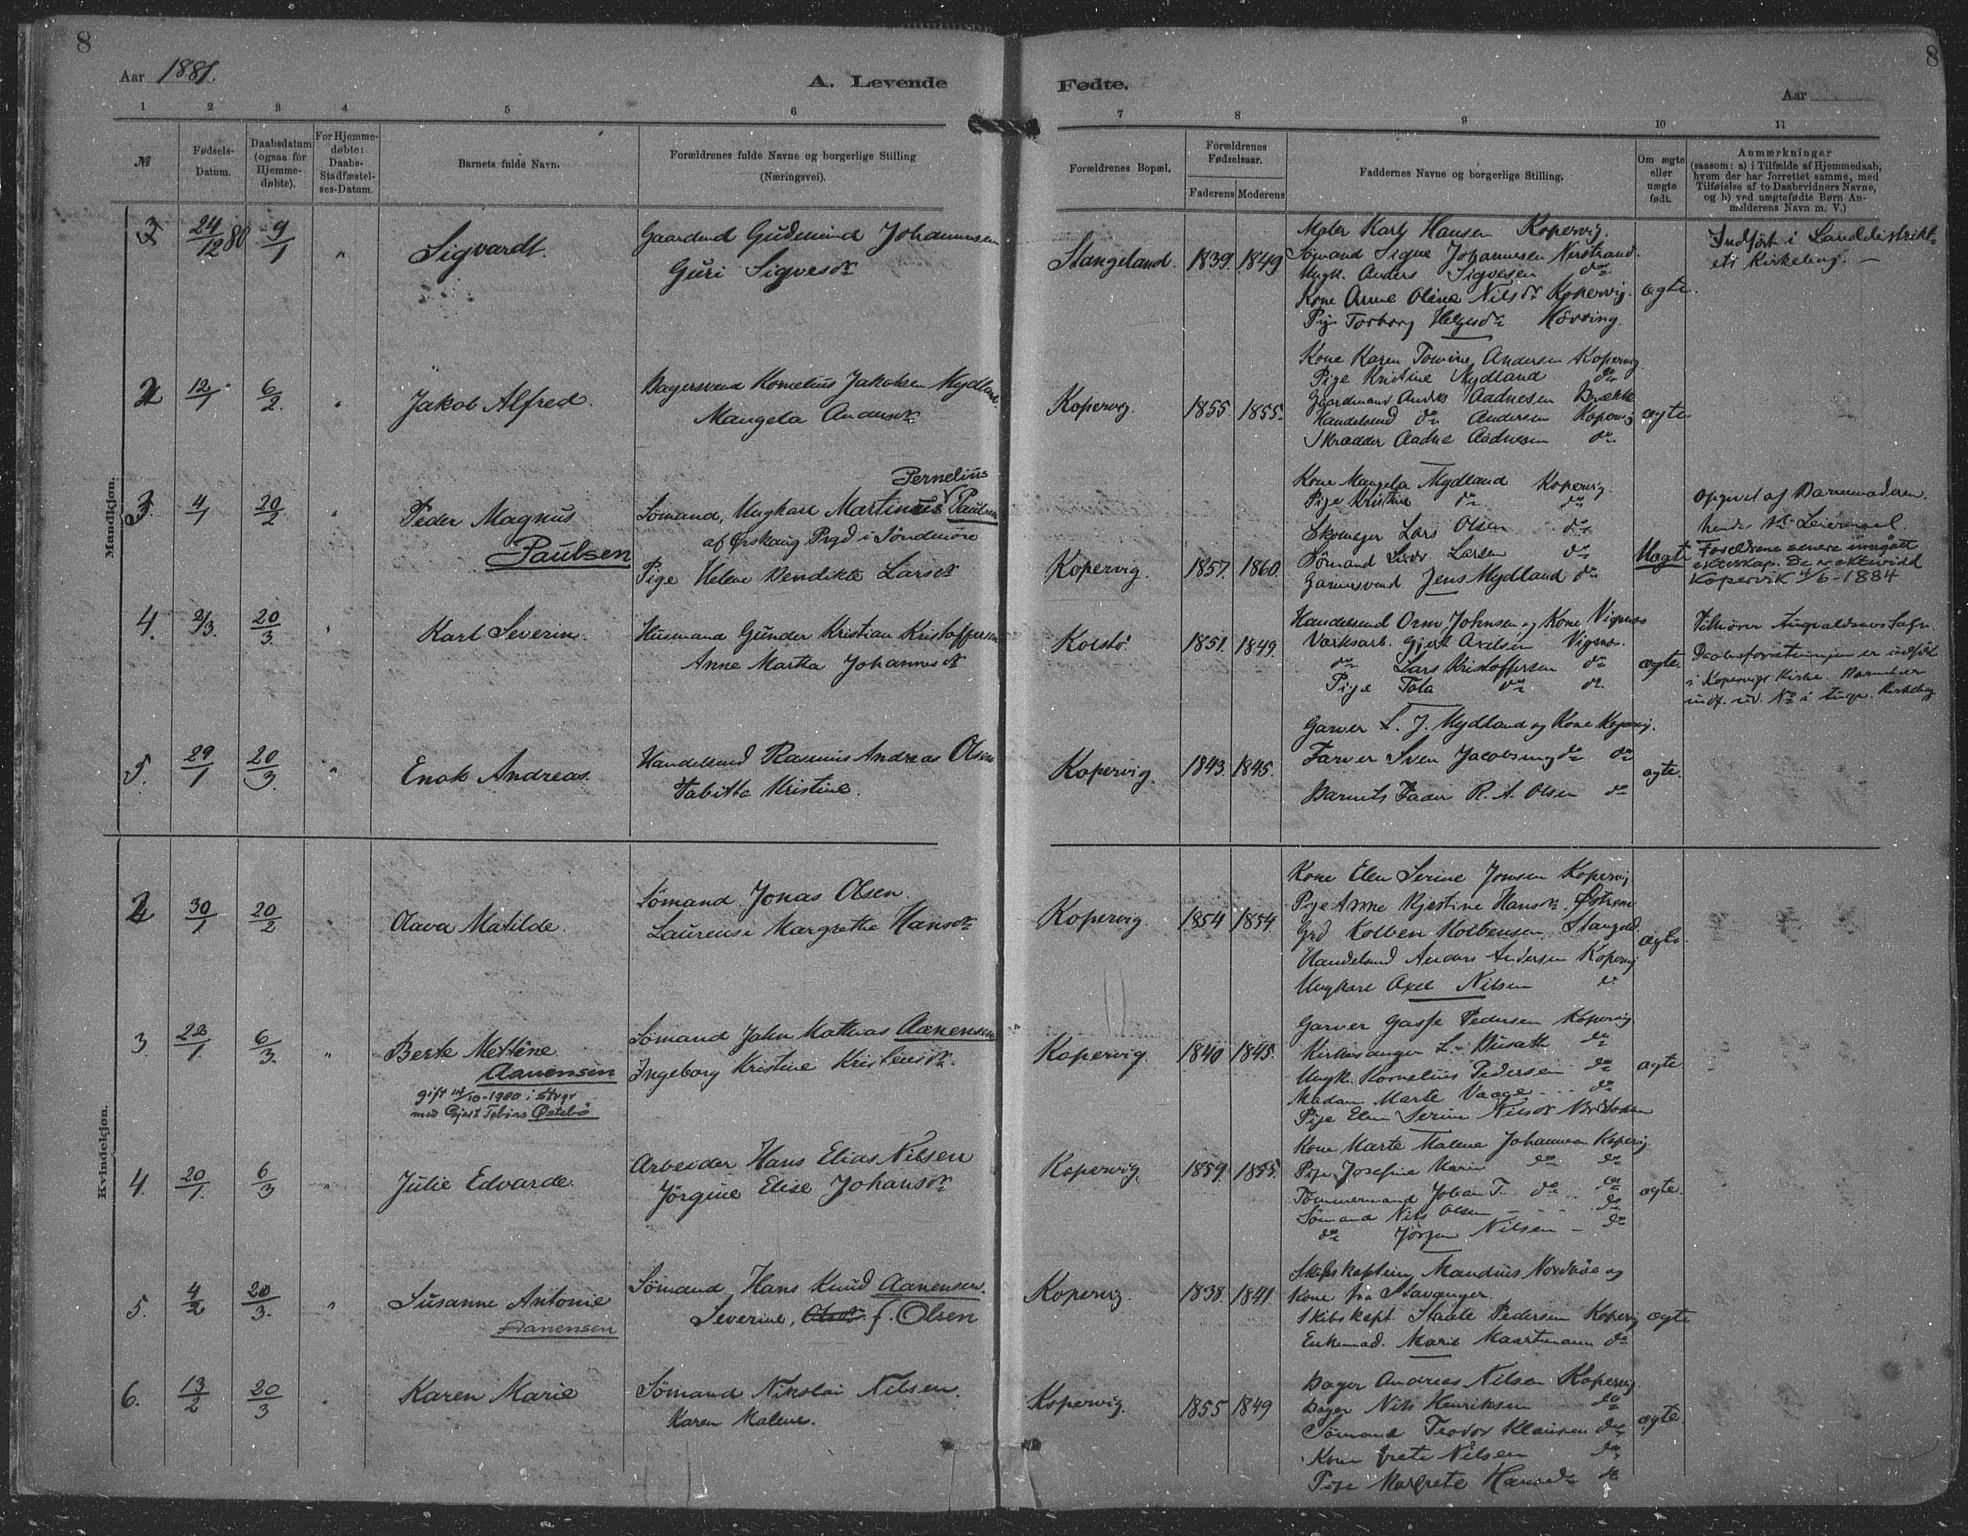 8
Aar 1881.
A. Levende
Fødte.
Aar
8
1 2 3 4 5 6 7 8 9 10 11
№
Fødsels-
Datum.
Daabsdatum
(ogsaa for
Hjemme-
døbte).
For Hjemme-
døbte:
Daabs-
Stadfæstel-
ses-Datum.
Barnets fulde Navn.
Forældrenes fulde Navne og borgerlige Stilling
(Næringsvei).
Forældrenes Bopæl,
Forældrenes
Fødselsaar.
Faderens Moderens
Faddernes Navne og borgerlige Stilling.
Om ægte
eller
uægte
født.
Anmærkninger
(saasom: a) i Tilfælde af Hjemmedaab,
hvem der har forrettet samme, med
Tilføielse af to Daabsvidners Navne,
og b) ved uægtefødte Børn An-
melderens Navn m. V.)
Mandkjøn.
24/12 80 9/1 " Sigvardt.
Gaardmd Gudmund Johannesen
Guri Sigvesdtr
Stangeland. 1839. 1849
Maler Karl Hansen Kopervig.
Sømand Signe Johannesen Nerstrand.
Ungk. Anders Sigvesen do
Kone Anne Oline Nilsdr Kopervig.
Pige Torborg Helgesdr Hövring.
ægte.
Indført i Landdistrikt-
ets Kirkebog. —
2 12/1 6/2. " Jakob Alfred.
Bagersvend Kornelius Jakobsen Mydland.
Mangela Andersdtr
Kopervig. 1855. 1855.
Kone Karen Tomine Andersen Kopervig
Pige Kristine Mydland do
Gaardmand Anders Aadnesen Brække
Handelsmd do Andersen Kopervig
Skrædder Aadne Aadnesen do.
ægte
3. 4/1 20/2 " Peder Magnus
Paulsen
Pernelius
Sømand, Ungkarl Martinus Paulsen
af Ørskaug Prgd i Söndmöre
Pige Helene Bendikte Larsdtr
Kopervig. 1857. 1860.
Kone Mangela Mydland Kopervig.
Pige Kristine do do
Skomager Lars Olsen do
Sømand Larsen do
Garversvend Jens Mydland do
Uægte
Opgivet af Barnemoderen.
hendes 1ste Leiermaal.
Foreldrene senere inngått
ekteskap. De er ektevidd
Kopervik 4/6-1884
4. 2/3. 20/3 " Karl Severin.
Husmand Gunder Kristian Kristoffersen
Anne Martha Johannesdtr
Kolstø. 1851. 1849.
Handelsmd Orm Johnsen og Kone Vigsnes
Værksarb. Gjert Axelsen Vigsnes.
do Lars Kristoffersen do
Pige Tola do do
ægte
Tilhører Augvaldsnes Sogn.
Daabsforretningen er indført
i Kopervigs Kirke. Barnet er
indf. ud. No i Augv. Kirkebog
5. 29/1 20/3. " Enok Andreas.
Handelsmd Rasmus Andreas Olsen
Tabitta Kristine.
Kopervig. 1843. 1845.
Garver L. J. Mydland og Kone Kopervig.
Farver Sven Jacobsen og do do
Barnets Fader R. A. Olsen do
ægte.
Kvindekjøn.
2 30/1 20/2 " Olava Matilde.
Sømand Jonas Olsen.
Laurense Margrethe Hansdtr
Kopervig 1854 1854
Kone Elen Serine Jonsen Kopervig
Pige Anne Kjestine Hansdtr,
Grd Kolben Kolbensen Stangeld.
Handelsmd Anders Andersen Kopervig
Ungkarl Axel Nilsen do
ægte.
3. 22/1 6/3. " Berte Mettine.
Aanensen
gift 14/10-1900 i Stvgr
med Gjert Tobias Østebö
Sømand John Mathias Aanensen
Ingeborg Kristine Kristensdtr.
Kopervig. 1840 1845.
Garver Gasse Pedersen Kopervig
Kirkesanger L. Husath do
Ungk. Kornelius Pedersen do
Madam Marte Vaage do
Pige Elen Serine Nilsdr
ægte
4. 20/1 6/3 " Julie Edvarde.
Arbeider Hans Elias Nilsen
Jörgine Elise Johansdtr
Kopervig. 1859. 1855.
Kone Marte Malene Johannesen Kopervig.
Pige Josefine Marie do do
Tömmermand Johan T. do do
Sømand Nils Olsen do
do Jörgen Nilsen — do
ægte.
5. 4/2 20/3. " Susanne Antonie
Aanensen
Sømand Hans Knud Aanensen.
Severine, Olsdtr. f. Olsen
Kopervig. 1838. 1841.
Skibskaptein Mandius Nordböe og
Kone fra Stavanger.
Skibskapt. Staale Pedersen Kopervig
Enkemad. Marie Maartmann do
ægte
6. 13/2 20/3 " Karen Marie
Sømand Nikolai Nilsen.
Karen Malene.
Kopervig. 1855 1849
Bager Andreas Nilsen Kopervig.
Bager Nils Henriksen do
Sømand Teodor Klausen do
Kone Grete Nilsen do
Pige Margrete Hansdr do
ægte.